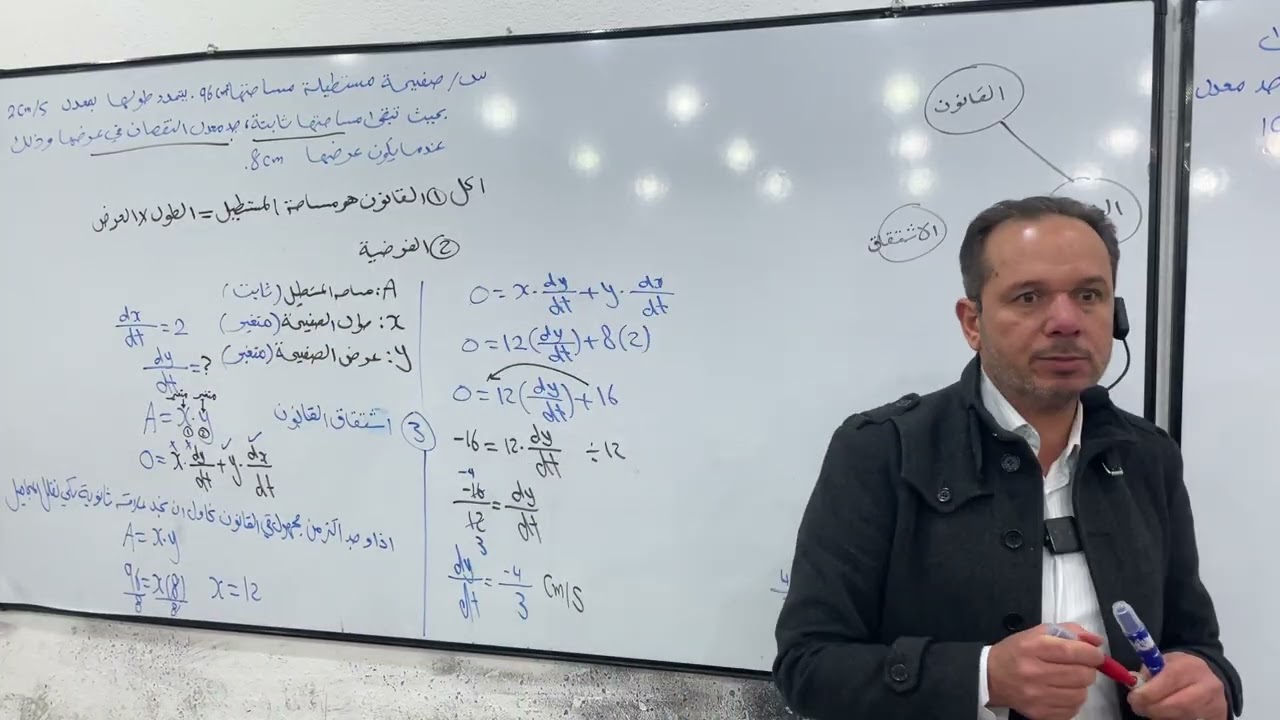 س/ صفيحة مستطيلة مساحتها 96cm. يتمدد طولها بمعدل 2cm/s
بحيث تبقى مساحتها ثابتة، جد معدل النقصان في عرضها وذلك
عندما يكون عرضها 8cm.
الحل ① القانون هو مساحة المستطيل = الطول x العرض
② الفرضية
A: مساحة المستطيل (ثابت)
x: طول الصفيحة (متغير) dx/dt = 2
y: عرض الصفيحة (متغير) dy/dt = ?
متغير متغير
③ اشتقاق القانون A = x·y
① ②
0 = x·dy/dt + y·dx/dt
اذا وجد اكثر من مجهول في القانون نحاول ان نجد علاقة ثانوية لكي نقلل المجاهيل
A = x·y
96/8 = x(8)/8 x = 12
0 = x·dy/dt + y·dx/dt
0 = 12(dy/dt) + 8(2)
0 = 12(dy/dt) + 16
-16 = 12·dy/dt ÷12
-4
-16/12 = dy/dt
3
dy/dt = -4/3 cm/s
القانون
الاشتقاق
ال
جد معدل